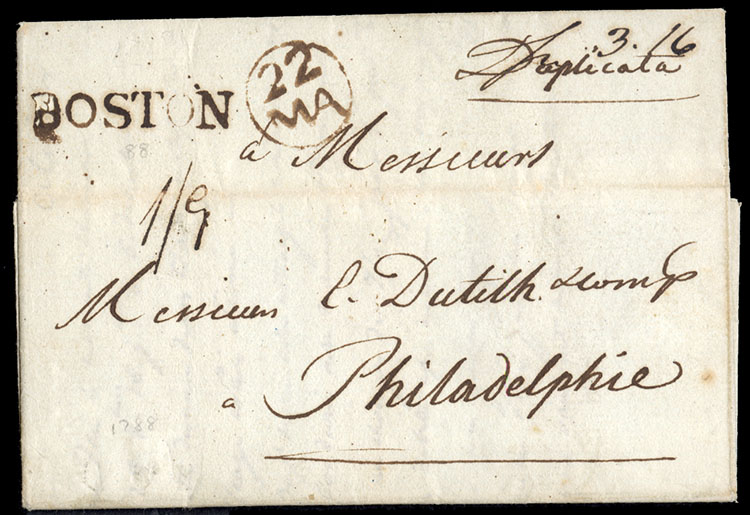 3.16
Duplicata
BOSTON 22 MA
à Messieurs
88
1/9
Messieurs E. Dutilh & comp
a Philadelphie
1788